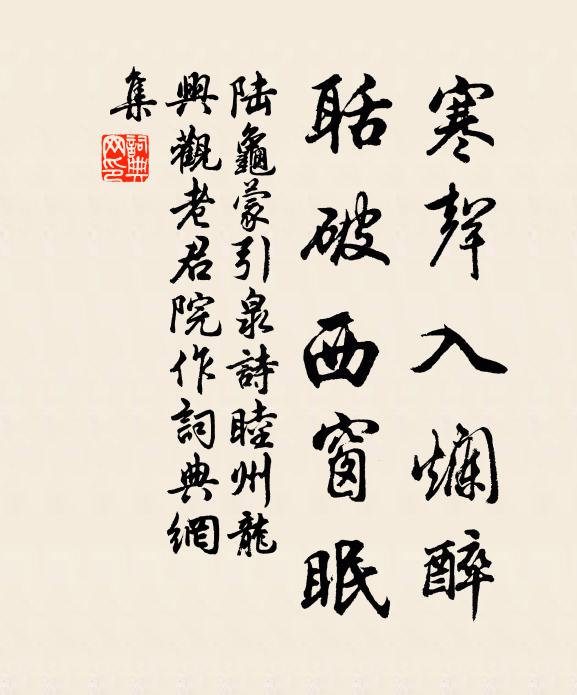 寒聲入爛醉
聒破西窗眠
陸龜蒙引泉詩睦州龍
興觀老君院作詞典網
集
詞典網印